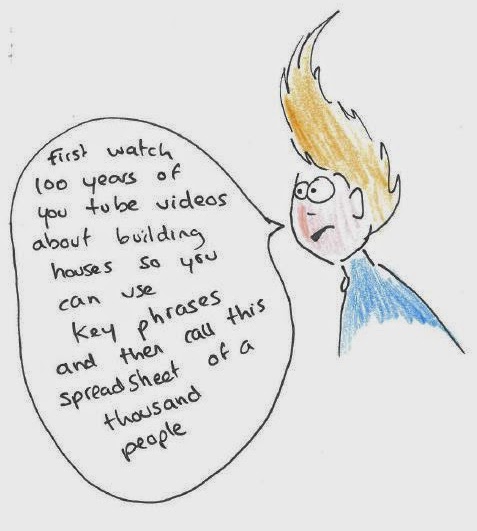 first watch
100 years of
you tube videos
about building
houses so you
can use
key phrases
and then call this
spreadsheet of a
thousand
people